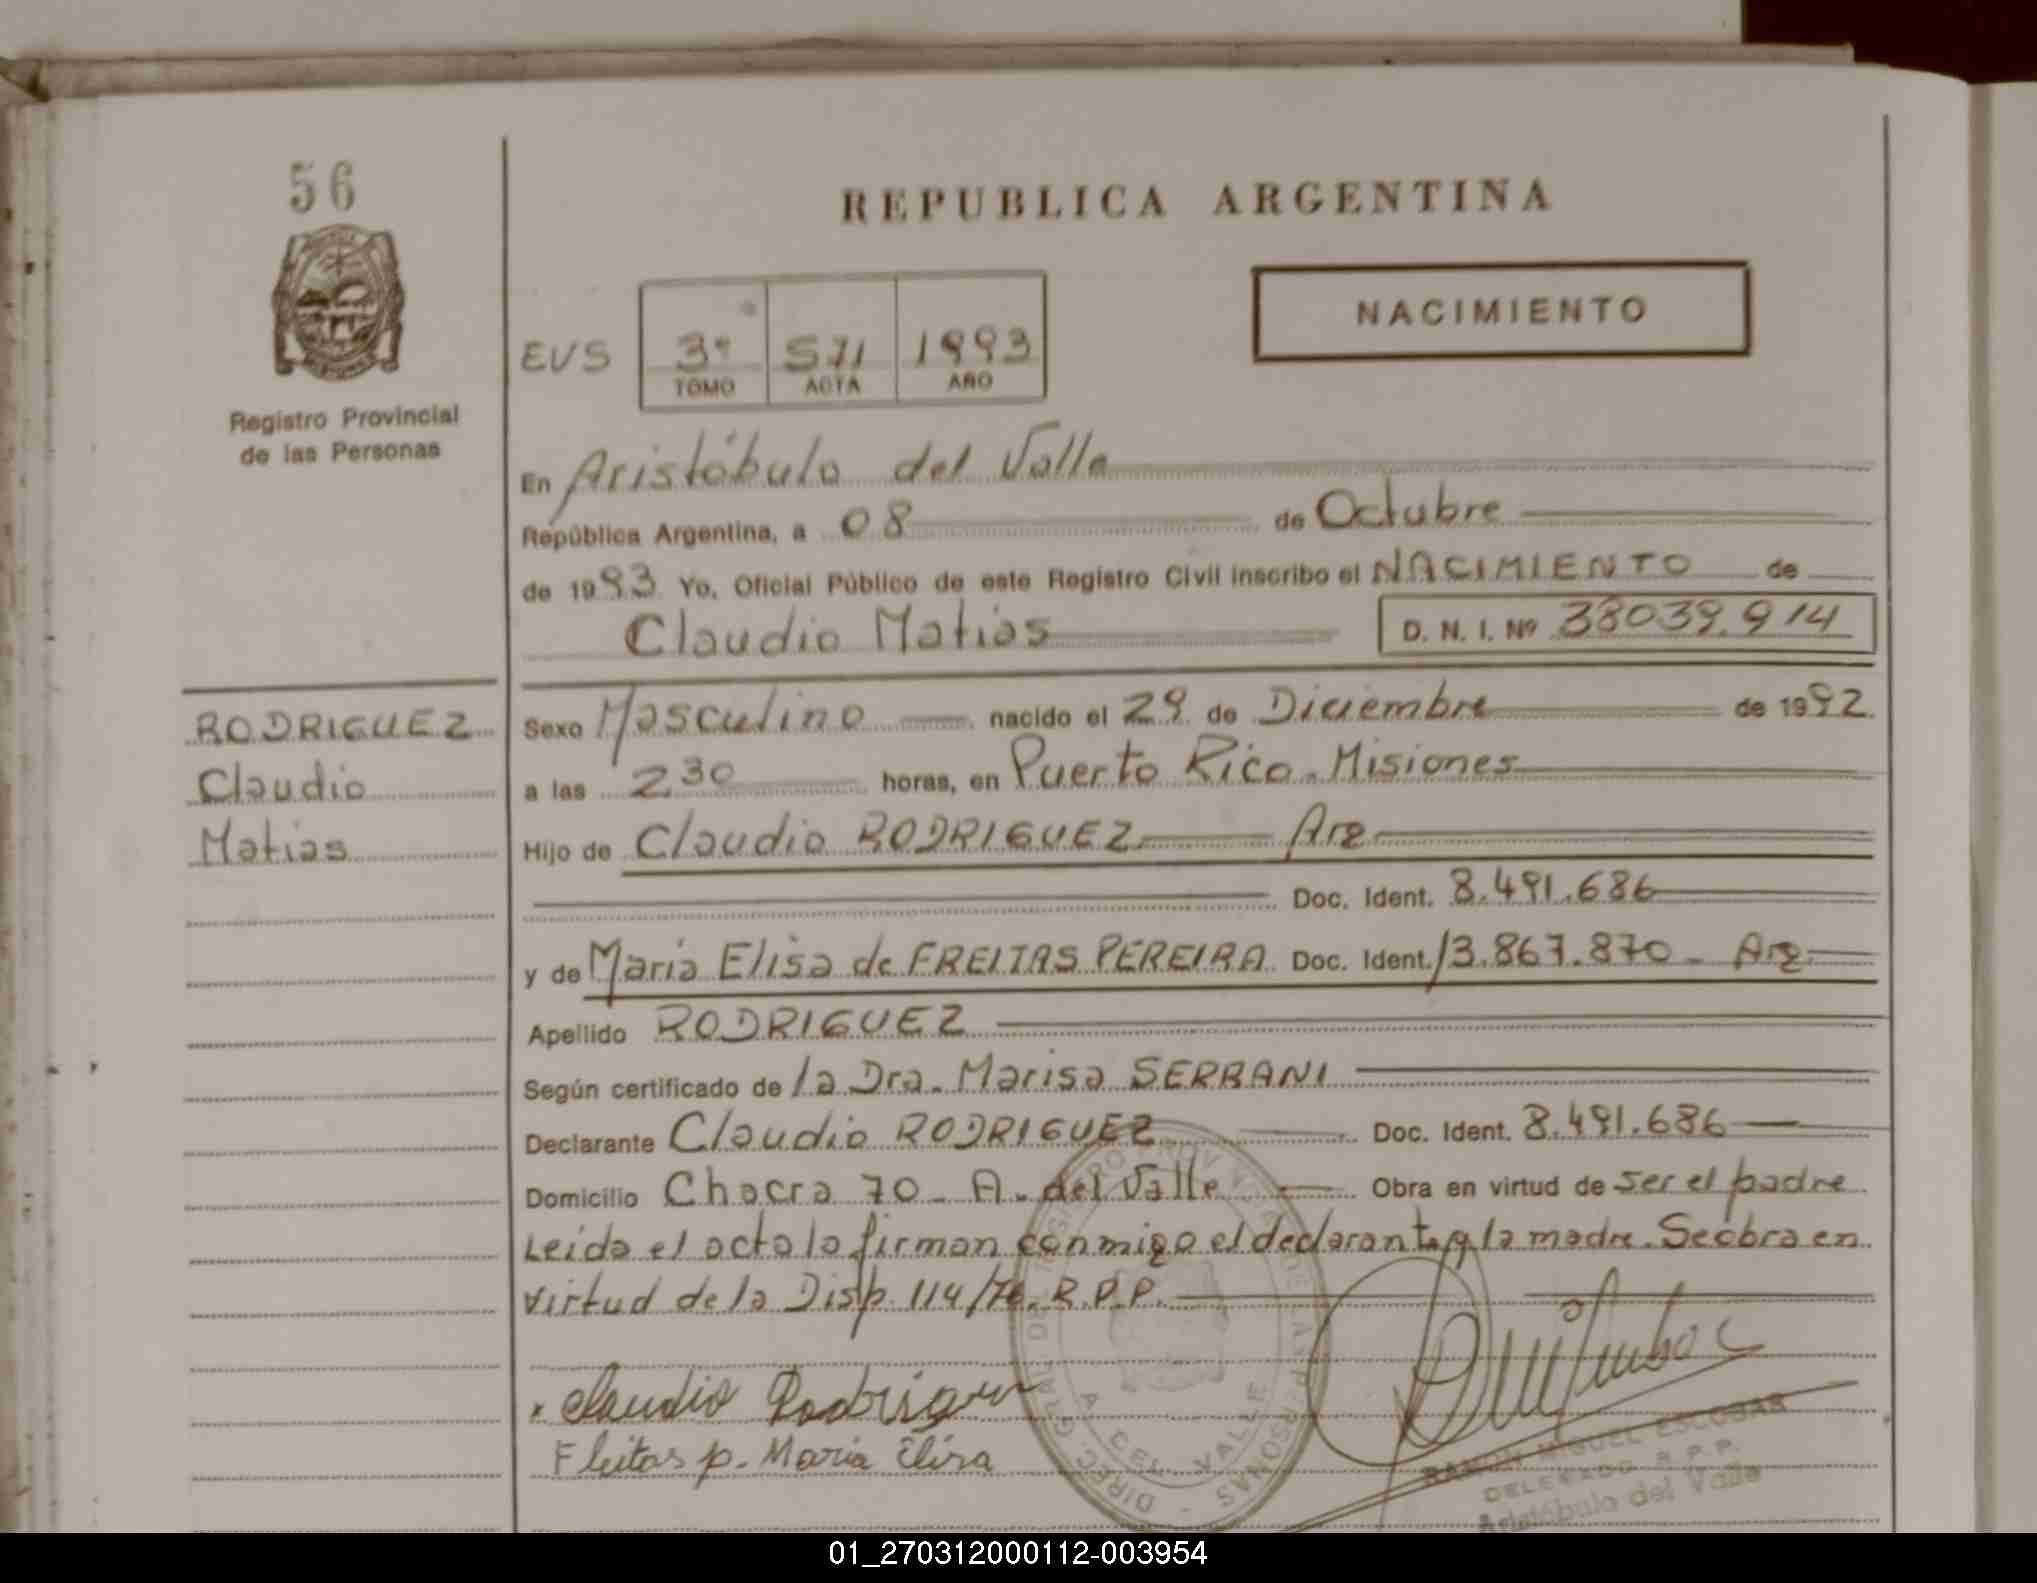 56
Registro Provincial
de las Personas
REPUBLICA ARGENTINA
NACIMIENTO
EVS 3º 571 1993
TOMO ACTA AÑO
En Aristóbulo del Valle
República Argentina, a 08 de Octubre
de 1993 Yo, Oficial Público de este Registro Civil inscribo el NACIMIENTO de
Claudio Matias D. N. I. Nº 38039.914
RODRIGUEZ
Claudio
Matias
Sexo Masculino nacido el 29 de Diciembre de 1992
a las 2 30 horas, en Puerto Rico. Misiones
Hijo de Claudio RODRIGUEZ Arg
Doc. Ident. 8.491.686
y de Maria Elisa de FREITAS PEREIRA Doc. Ident. 13.867.870 - Arg
Apellido RODRIGUEZ
Según certificado de la Dra. Marisa SERRANI
Declarante Claudio RODRIGUEZ Doc. Ident. 8.491.686
Domicilio Chacra 70 - A. del Valle Obra en virtud de ser el padre
Leida el acta la firman conmigo el declarante y la madre. Se obra en
virtud de la Disp. 114/76. R.P.P.
Claudio Rodriguez
Fleitas p. Maria Elisa
DIREC. GRAL. DEL REGISTRO PROVINCIAL DE LAS PERSONAS
A. DEL VALLE
RAMON MIGUEL ESCOBAR
DELEGADO R.P.P.
Aristóbulo del Valle
01_270312000112-003954